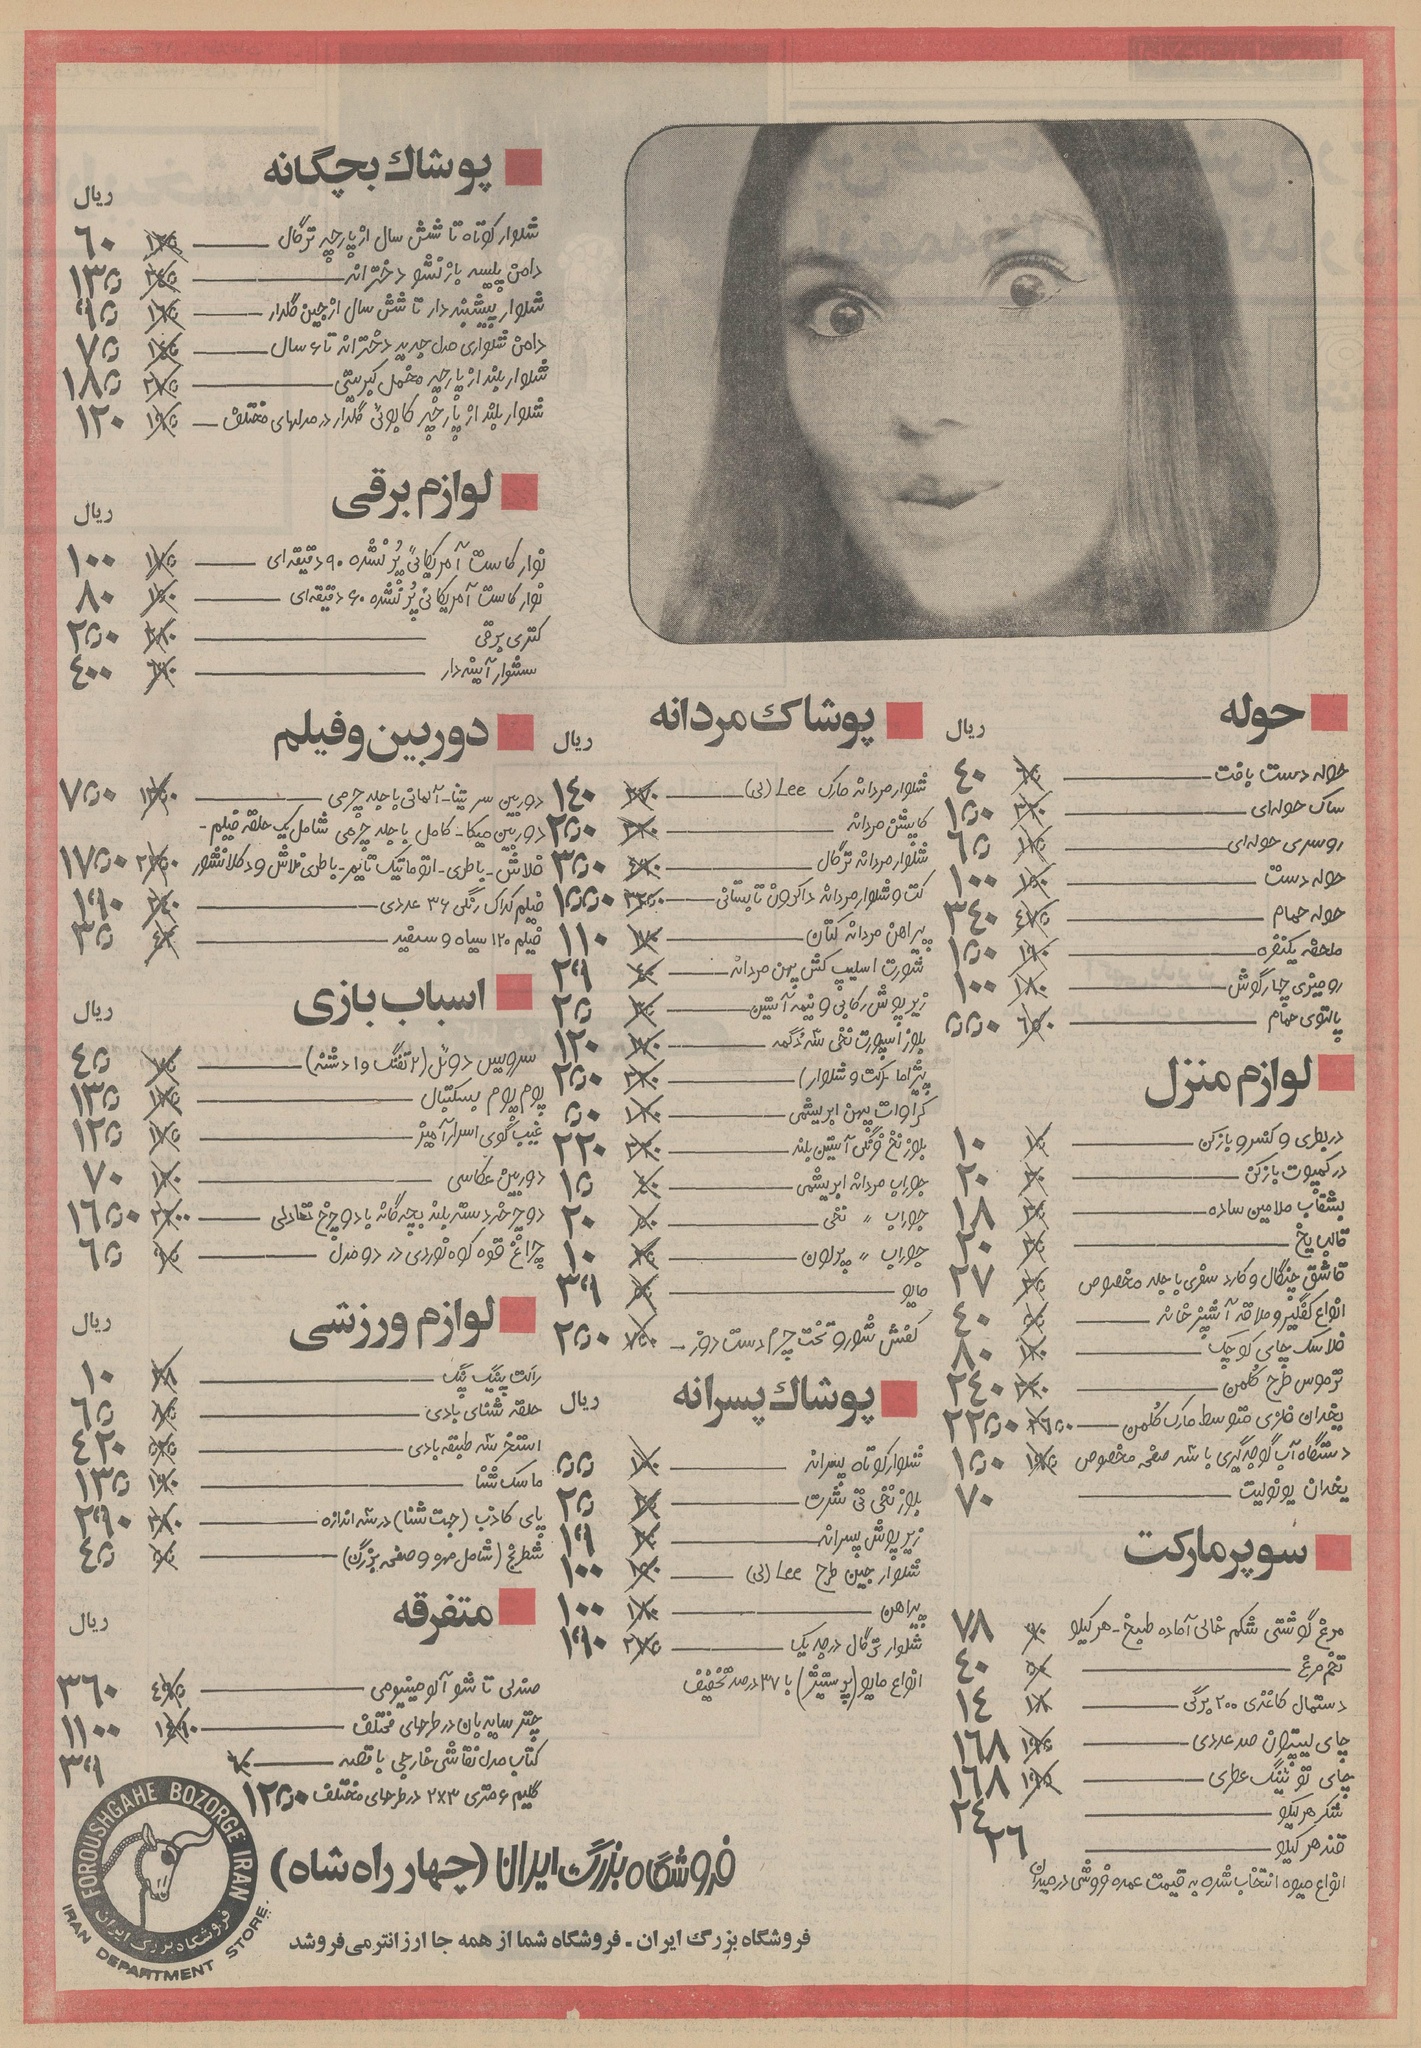 پوشاك بچگانه
ریال
شلوار کوتاه تا شش سال از پارچه ترگال ۶۰
دامن پلیسه بازنشو دخترانه ۱۳۵
شلوار پیشبنددار تا شش سال از جین گلدار ۹۵
دامن شلواری مدل جدید دخترانه تا ۶ سال ۷۵
شلوار بلند از پارچه مخمل کبریتی ۱۸۵
شلوار بلند از پارچه کابوئی گلدار در مدلهای مختلف ۱۲۰
لوازم برقی
ریال
نوار کاست آمریکائی پُر نشده ۹۰ دقیقه‌ای ۱۰۰
نوار کاست آمریکائی پُر نشده ۶۰ دقیقه‌ای ۸۰
کتری برقی ۲۵۰
سشوار آینه‌دار ۴۰۰
دوربین و فیلم
دوربین آلمانی با جلد چرمی ۷۵۰
دوربین میکا - کامل با جلد چرمی شامل یک حلقه فیلم -
فلاش - باطری - اتوماتیک تایم - باطری فلاش و دکلانشور ۱۷۵۰
فیلم کداک رنگی ۳۶ عددی ۱۹۰
فیلم ۱۲۰ سیاه و سفید ۳۵
اسباب بازی
ریال
سرویس دوئل (۲ تفنگ و ۱ دشنه) ۴۵
پوم پوم بسکتبال ۱۳۵
غیب گوی اسرارآمیز ۱۲۵
دوربین عکاسی ۷۰
دوچرخه دسته بلند بچه گانه با دو چرخ تعادلی ۱۶۵۰
چراغ قوه کوه نوردی در دو مدل ۶۵
لوازم ورزشی
ریال
راکت پینگ پنگ ۱۰
حلقه شنای بادی ۶۵
استخر سه طبقه بادی ۴۲۰
ماسک شنا ۱۳۵
پای کاذب (جهت شنا) در سه اندازه ۲۹۰
شطرنج (شامل مهره و صفحه بزرگ) ۴۵
متفرقه
ریال
صندلی تاشو آلومینیومی ۳۶۰
چتر سایه‌بان در طرحهای مختلف ۱۱۰۰
کتاب مدل نقاشی خارجی با قصه ۳۹
گلیم ۶ متری ۲x۳ در طرحهای مختلف ۱۲۵۰
پوشاك مردانه
ریال
شلوار مردانه مارک Lee (لی) ۱۴۰
کاپشن مردانه ۲۵۰
شلوار مردانه ترگال ۳۵۰
کت و شلوار مردانه داکرون تابستانی ۱۵۵۰
پیراهن مردانه کتان ۱۱۰
شورت اسلیپ کش پهن مردانه ۲۹
زیرپوش رکابی و نیمه آستین ۲۵
بلوز اسپورت نخی سه دُگمه ۱۲۰
پیژاما (کت و شلوار) ۲۵۰
کراوات پهن ابریشمی ۵۰
بلوز نخ فرنگی آستین بلند ۲۲۰
جوراب مردانه ابریشمی ۱۵
جوراب 〃 نخی ۲۰
جوراب 〃 پرلون ۱۰
مایو ۳۹
کفش شورو تخت چرم دست دوز ۲۵۰
پوشاك پسرانه
ریال
شلوار کوتاه پسرانه ۵۵
بلوز نخی تی شرت ۲۵
زیرپوش پسرانه ۱۹
شلوار جین طرح Lee (لی) ۱۰۰
پیراهن ۱۰۰
شلوار ترگال درجه یک ۱۹۰
انواع مایو (پرستیژ) با ۳۷ درصد تخفیف
حوله
ریال
حوله دست بافت ۴۰
ساک حوله‌ای ۱۵۰
روسری حوله‌ای ۶۵
حوله دست ۱۰۰
حوله حمام ۳۴۰
ملحفه یکنفره ۱۵۰
رومیزی چهارگوش ۱۰۰
پالتوی حمام ۵۵۰
لوازم منزل
دربطری و کنسرو بازکن ۱۰
درکمپوت بازکن ۲۰
بشقاب ملامین ساده ۱۸
قالب یخ ۲۰
قاشق چنگال و کارد سفری با جلد مخصوص ۲۷
انواع کفگیر و ملاقه آشپزخانه ۴۰
فلاسک چای کوچک ۸۰
ترموس طرح کُلمن ۲۴۰
یخدان فلزی متوسط مارک کُلمن ۲۲۵۰
دستگاه آب گوجه‌گیری با سه صفحه مخصوص ۱۵۰
یخدان یونولیت ۷۰
سوپر مارکت
مرغ گوشتی شکم خالی آماده طبخ - هر کیلو ۷۸
تخم مرغ ۴۰
دستمال کاغذی ۲۰۰ برگی ۱۴
چای لیپتون صد عددی ۱۶۸
چای توئینگ عطری ۱۶۸
شکر هر کیلو ۲۴
قند هر کیلو ۲۶
انواع میوه انتخاب شده به قیمت عمده فروشی در میدان
فروشگاه بزرگ ایران (چهار راه شاه)
فروشگاه بزرگ ایران - فروشگاه شما از همه جا ارزانتر می فروشد
FOROUSHGAHE BOZORGE IRAN
فروشگاه بزرگ ایران
IRAN DEPARTMENT STORE